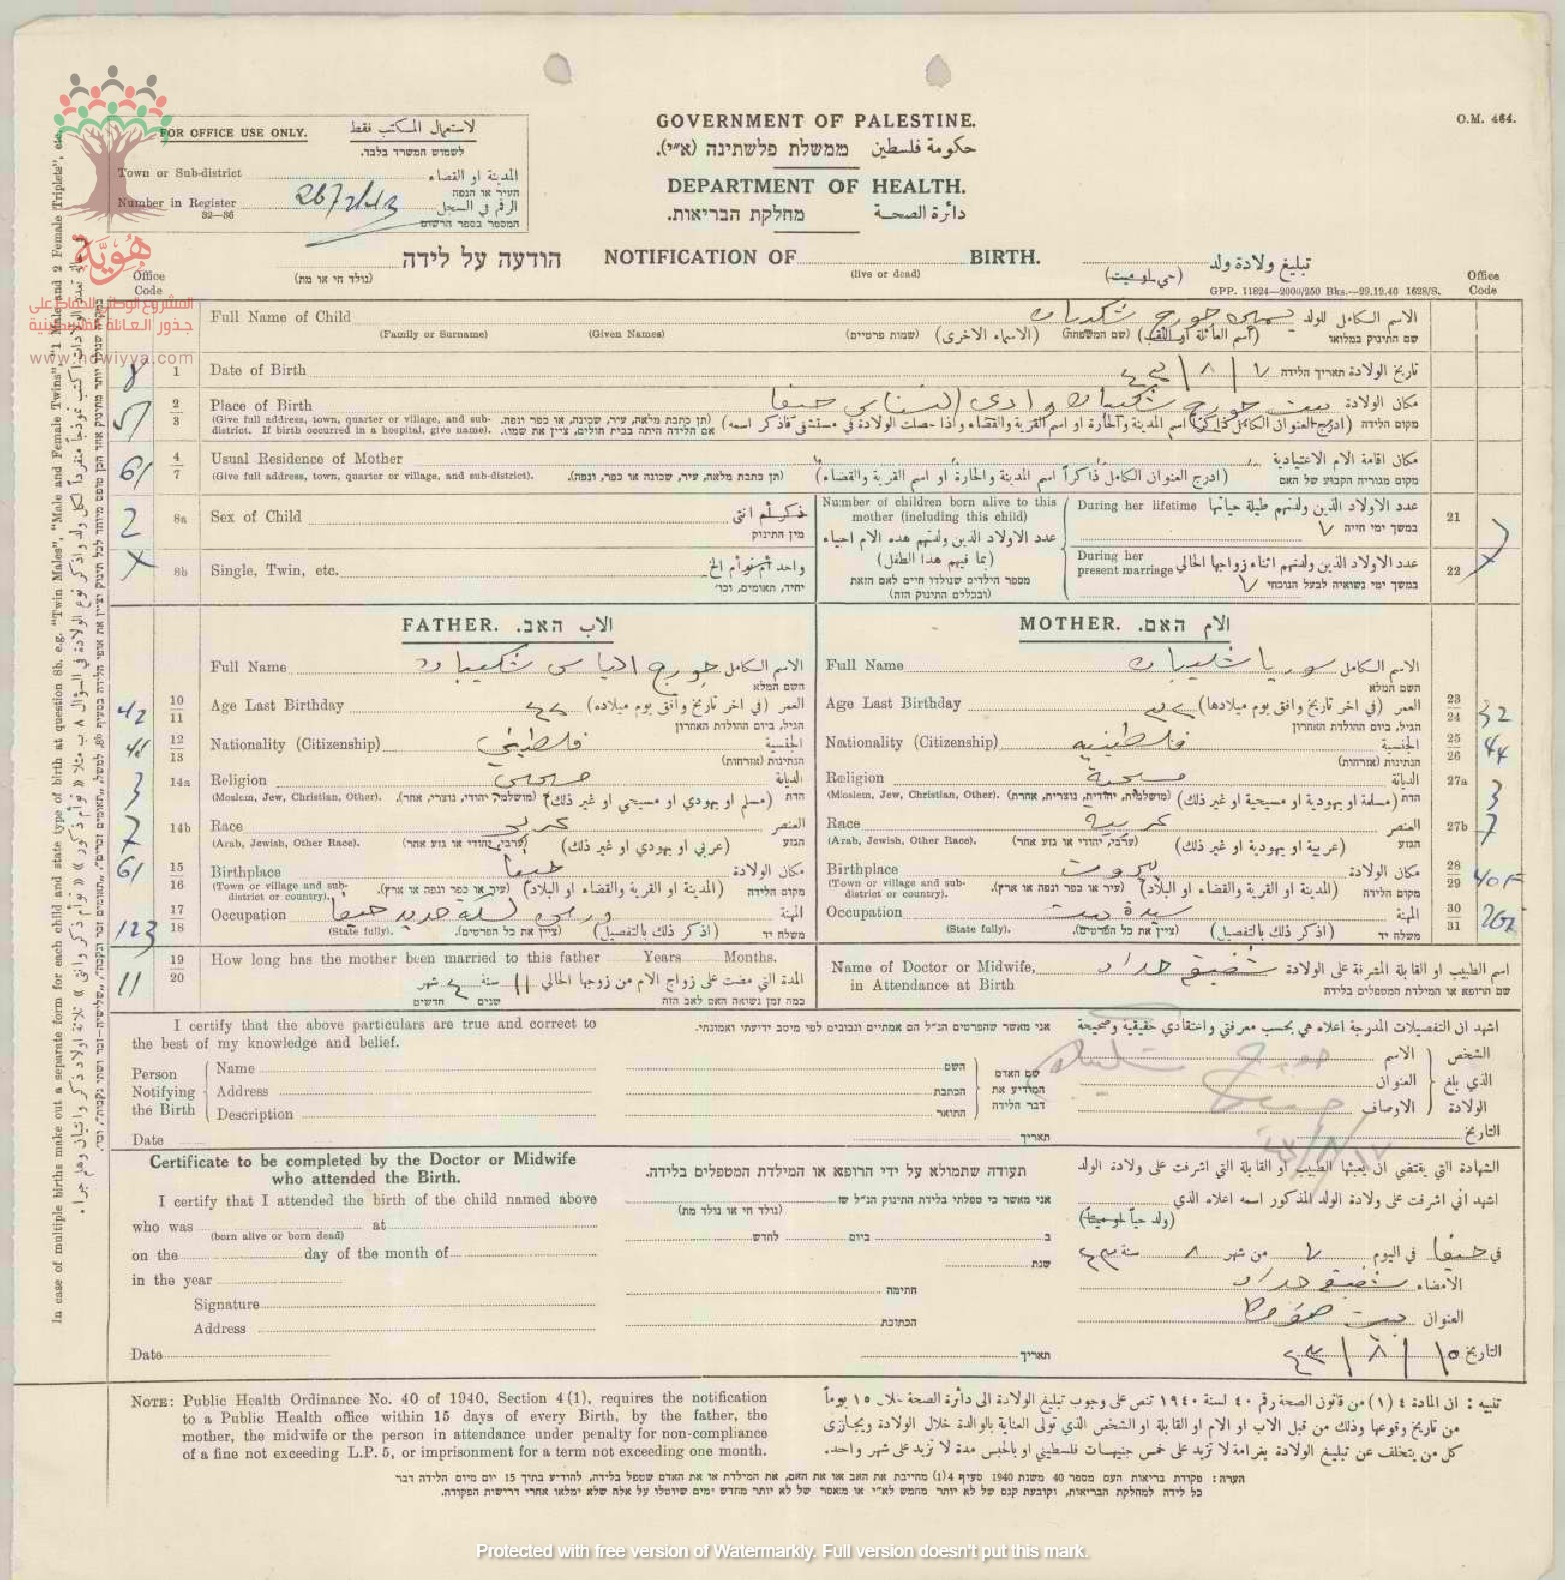 GOVERNMENT OF PALESTINE.
حكومة فلسطين ממשלת פלשתינה (א״י).
DEPARTMENT OF HEALTH.
دائرة الصحة מחלקת הבריאות.
O.M. 464.
FOR OFFICE USE ONLY. لاستعمال المكتب فقط
לשמוש המשרד בלבד.
Town or Sub-district المدينة او القضاء
העיר או הנפה
Number in Register الرقم في السجل
32—36 המספר בספר הרשום
הודעה על לידה NOTIFICATION OF BIRTH. تبليغ ولادة ولد
(נולד חי או מת) (live or dead) (حي او ميت)
GPP. 11824—2000/250 Bks.—22.12.40 1628/S.
Office Code
Office Code
هُوِيَّة
المشروع الوطني للحفاظ على
جذور العائلة الفلسطينية
www.howiyya.com
Full Name of Child جورج الاسم الكامل للولد
(Family or Surname) (Given Names) (שמות פרטיים) (الاسماء الاخرى) (שם המשפחה) (اسم العائلة او اللقب) שם התינוק במלואו
8 1 Date of Birth ٧ / ٨ / ٤٣ تاريخ الولادة תאריך הלידה
2 3 Place of Birth بيت جورج حيفا مكان الولادة
(Give full address, town, quarter or village, and sub-district. If birth occurred in a hospital, give name). (תן כתבת מלאה, עיר, שכונה, או כפר ונפה. אם הלידה היתה בבית חולים, ציין את שמו). (ادرج العنوان الكامل ذاكراً اسم المدينة والحارة او اسم القرية والقضاء واذا حصلت الولادة في مستشفى فاذكر اسمه) מקום הלידה
61 4 7 Usual Residence of Mother مكان اقامة الام الاعتيادية
(Give full address, town, quarter or village, and sub-district). (תן כתבת מלאה, עיר, שכונה או כפר, ונפה). (ادرج العنوان الكامل ذاكراً اسم المدينة والحارة او اسم القرية والقضاء) מקום מגוריה הקבוע של האם
2 8a Sex of Child ذكر ام انثى
מין התינוק
8b Single, Twin, etc. واحد ام توأم الخ
יחיד, תאומים, וכו׳
Number of children born alive to this mother (including this child)
عدد الاولاد الذين ولدتهم هذه الام احياء
(بما فيهم هذا الطفل)
מספר הילדים שנולדו חיים לאם הזאת
(ובכלל התינוק הזה)
During her lifetime عدد الاولاد الذين ولدتهم طيلة حياتها 21
במשך ימי חייה ٧
During her present marriage عدد الاولاد الذين ولدتهم اثناء زواجها الحالي 22
במשך ימי נשואיה לבעל הנוכחי ٧
FATHER. الاب האב.
MOTHER. الام האם.
Full Name جورج الياس الاسم الكامل
השם המלא
Full Name الاسم الكامل
השם המלא
42 10 11 Age Last Birthday العمر (في اخر تاريخ وافق يوم ميلاده)
הגיל, ביום ההולדת האחרון
Age Last Birthday ٣٢ العمر (في اخر تاريخ وافق يوم ميلادها) 23 24 32
הגיל, ביום ההולדת האחרון
44 12 13 Nationality (Citizenship) فلسطيني الجنسية
הנתינות (אזרחות)
Nationality (Citizenship) فلسطينيه الجنسية 25 26 44
הנתינות (אזרחות)
3 14a Religion مسيحي الديانة
(Moslem, Jew, Christian, Other). (מושלמי, יהודי, נוצרי, אחר). (مسلم او يهودي او مسيحي او غير ذلك) הדת
Religion مسيحية الديانة 27a 3
(Moslem, Jew, Christian, Other). (מושלמית, יהודית, נוצרית, אחרת) (مسلمة او يهودية او مسيحية او غير ذلك) הדת
7 14b Race عربي العنصر
(Arab, Jewish, Other Race). (ערבי, יהודי או גזע אחר) (عربي او يهودي او غير ذلك) הגזע
Race عربية العنصر 27b 7
(Arab, Jewish, Other Race). (ערבי, יהודי או גזע אחר) (عربية او يهودية او غير ذلك) הגזע
61 15 16 Birthplace حيفا مكان الولادة
(Town or village and sub-district or country). (עיר או כפר ונפה או ארץ). (المدينة او القرية والقضاء او البلاد) מקום הלידה
Birthplace بيروت مكان الولادة 28 29
(Town or village and sub-district or country). (עיר או כפר ונפה או ארץ). (المدينة او القرية والقضاء او البلاد) מקום הלידה
123 17 18 Occupation سكة حديد حيفا المهنة
(State fully). (ציין את כל הפרטים). (اذكر ذلك بالتفصيل) משלח יד
Occupation سيدة بيت المهنة 30 31
(State fully). (ציין את כל הפרטים). (اذكر ذلك بالتفصيل) משלח יד
11 19 20 How long has the mother been married to this father Years Months.
المدة التي مضت على زواج الام من زوجها الحالي ١١ سنة شهر
כמה זמן נשואה האם לאב הזה שנים חדשים
Name of Doctor or Midwife, in Attendance at Birth شفيقه حداد اسم الطبيب او القابلة المشرفة على الولادة
שם הרופא או המילדת המטפלים בלידה
I certify that the above particulars are true and correct to the best of my knowledge and belief.
אני מאשר שהפרטים הנ״ל הם אמתיים ונכונים לפי מיטב ידיעתי ואמונתי.
اشهد ان التفصيلات المدرجة اعلاه هي بحسب معرفتي واعتقادي حقيقية وصحيحة
Person Notifying the Birth
Name השם الاسم
Address הכתבת العنوان
Description התואר الاوصاف
שם האדם המודיע את דבר הלידה
الشخص الذي بلغ الولادة
جورج
Date תאריך التاريخ
Certificate to be completed by the Doctor or Midwife who attended the Birth.
תעודה שתמולא על ידי הרופא או המילדת המטפלים בלידה.
الشهادة التي يقتضي ان يعبئها الطبيب او القابلة التي اشرفت على ولادة الولد
I certify that I attended the birth of the child named above
אני מאשר כי טפלתי בלידת התינוק הנ״ל ש
اشهد اني اشرفت على ولادة الولد المذكور اسمه اعلاه الذي
who was at (נולד חי או נולד מת) (ولد حياً او ميتاً)
(born alive or born dead)
on the day of the month of ב ביום לחדש
في حيفا في اليوم ٧ من شهر ٨ سنة ٤٣
in the year שנת
Signature חתימה شفيقه حداد الامضاء
Address הכתובת بيت العنوان
Date תאריך ١٥ / ٨ / ٤٣ التاريخ
NOTE: Public Health Ordinance No. 40 of 1940, Section 4(1), requires the notification
to a Public Health office within 15 days of every Birth, by the father, the
mother, the midwife or the person in attendance under penalty for non-compliance
of a fine not exceeding L.P. 5, or imprisonment for a term not exceeding one month.
تنبيه : ان المادة ٤ (١) من قانون الصحة رقم ٤٠ لسنة ١٩٤٠ تنص على وجوب تبليغ الولادة الى دائرة الصحة خلال ١٥ يوماً
من تاريخ وقوعها وذلك من قبل الاب او الام او القابلة او الشخص الذي تولى العناية بالوالدة خلال الولادة ويجازى
كل من يتخلف عن تبليغ الولادة بغرامة لا تزيد على خمس جنيهات فلسطيني او بالحبس مدة لا تزيد على شهر واحد.
הערה: פקודת בריאות העם מספר 40 משנת 1940 סעיף 4(1) מחייבת את האב או את האם, את המילדת או את האדם שטפל בלידה, להודיע בתוך 15 יום מיום הלידה דבר
כל לידה למחלקת הבריאות, וקובעת קנס של לא יותר מחמש לא״י או מאסר של לא יותר מחדש ימים שיוטלו על אלה שלא ימלאו אחרי דרישות הפקודה.
In case of multiple births make out a separate form for each child and state type of birth at question 8b, e.g. "Twin Males", "Male and Female Twins", "1 Male and 2 Female Triplets", etc.
Protected with free version of Watermarkly. Full version doesn't put this mark.